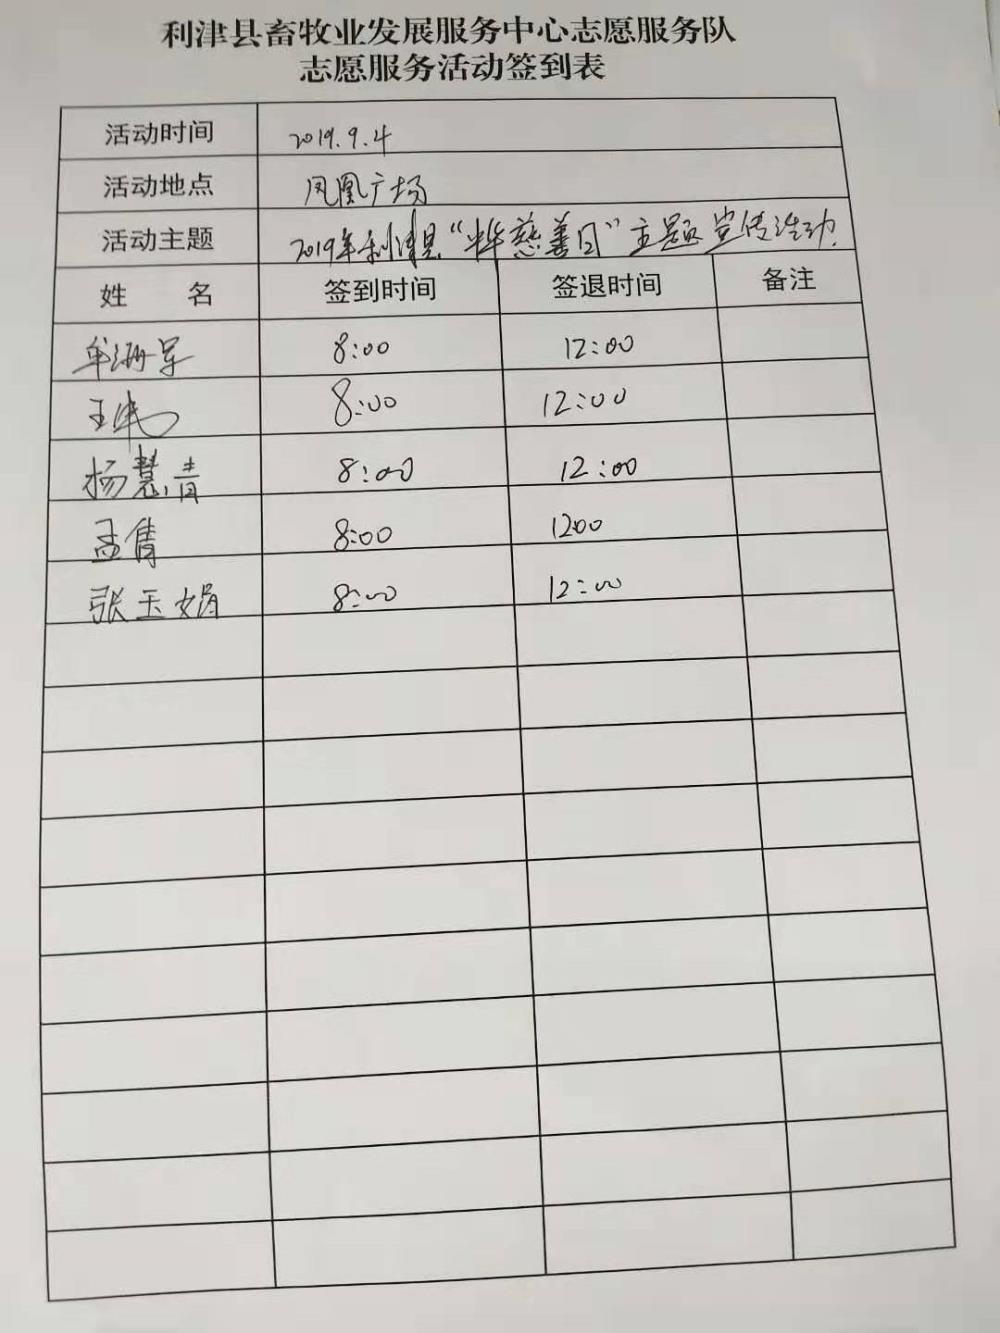 利津县畜牧业发展服务中心志愿服务队
志愿服务活动签到表
活动时间 2019.9.4
活动地点 凤凰广场
活动主题 2019年利津县“中华慈善日”主题宣传活动
姓 名 签到时间 签退时间 备注
8:00 12:00
王 8:00 12:00
杨慧青 8:00 12:00
孟倩 8:00 1200
张玉娟 8:00 12:00